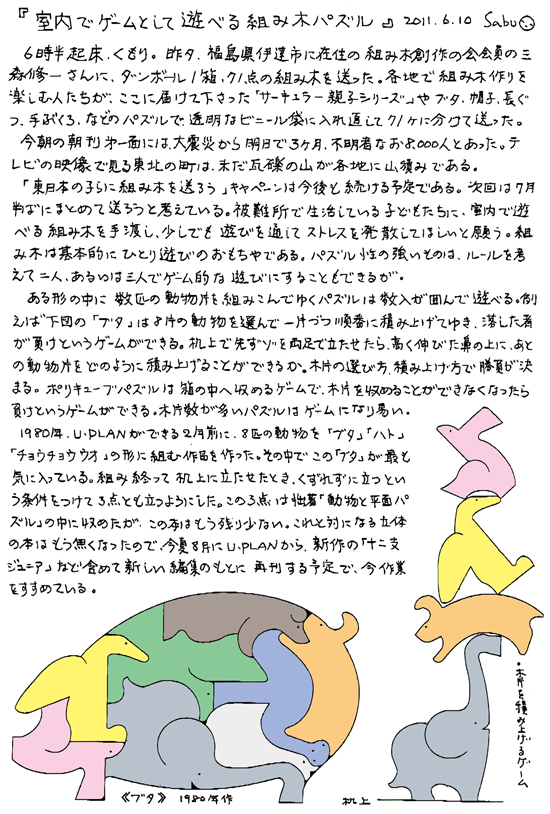 『室内でゲームとして遊べる組み木パズル』2011.6.10 Sabu
6時半起床、くもり。昨夕、福島県伊達市に在住の組み木創作の会会員の三
森修一さんに、ダンボール1箱、71点の組み木を送った。各地で組み木作りを
楽しむ人たちが、ここに届けて下さった「サーキュラー親子シリーズ」やブタ、帽子、長ぐ
つ、手ぶくろ、などのパズルで、透明なビニール袋に入れ直して71ヶに分けて送った。
今朝の朝刊第一面には、大震災から明日で3ヶ月、不明者なお8,000人とあった。テ
レビの映像で見る東北の町は、未だ瓦礫の山が各地に山積みである。
「東日本の子らに組み木を送ろう」キャペーンは今後も続ける予定である。次回は7月
半ばにまとめて送ろうと考えている。被難所で生活している子どもたちに、室内で遊
べる組み木を手渡し、少しでも遊びを通してストレスを発散してほしいと願う。組
み木は基本的にひとり遊びのおもちゃである。パズル性の強いものは、ルールを考
えて二人、あるいは三人でゲーム的な遊びにすることもできるが。
ある形の中に数匹の動物片を組みこんでゆくパズルは数人が囲んで遊べる。例
えば下図の「ブタ」は8片の動物を選んで一片づつ順番に積み上げてゆき、落した者
が負けというゲームができる。机上で先ずゾを両足で立たせたら、高く伸びた鼻の上に、あと
の動物片をどのように積み上げることができるか。木片の選び方、積み上げ方で勝負が決
まる。ポリキューブパズルは箱の中へ収めるゲームで、木片を収めることができなくなったら
負けというゲームができる。木片数が多いパズルはゲームになり易い。
1980年、U・PLANができる2月前に、8匹の動物を「ブタ」「ハト」
「チョウチョウウオ」の形に組む作品を作った。その中でこの「ブタ」が最も
気に入っている。組み終って机上に立たせたとき、くずれずに立つとい
う条件をつけて3点とも立つようにした。この3点は拙著「動物と平面パ
ズル」の中に収めたが、この本はもう残り少ない。これと対になる立体
の本はもう無くなったので、今夏8月にU・PLANから、新作の「十二支
ジュニア」など含めて新しい編集のもとに再刊する予定で、今作業
をすすめている。
・木片を積み上げるゲーム
《ブタ》 1980年作
机上